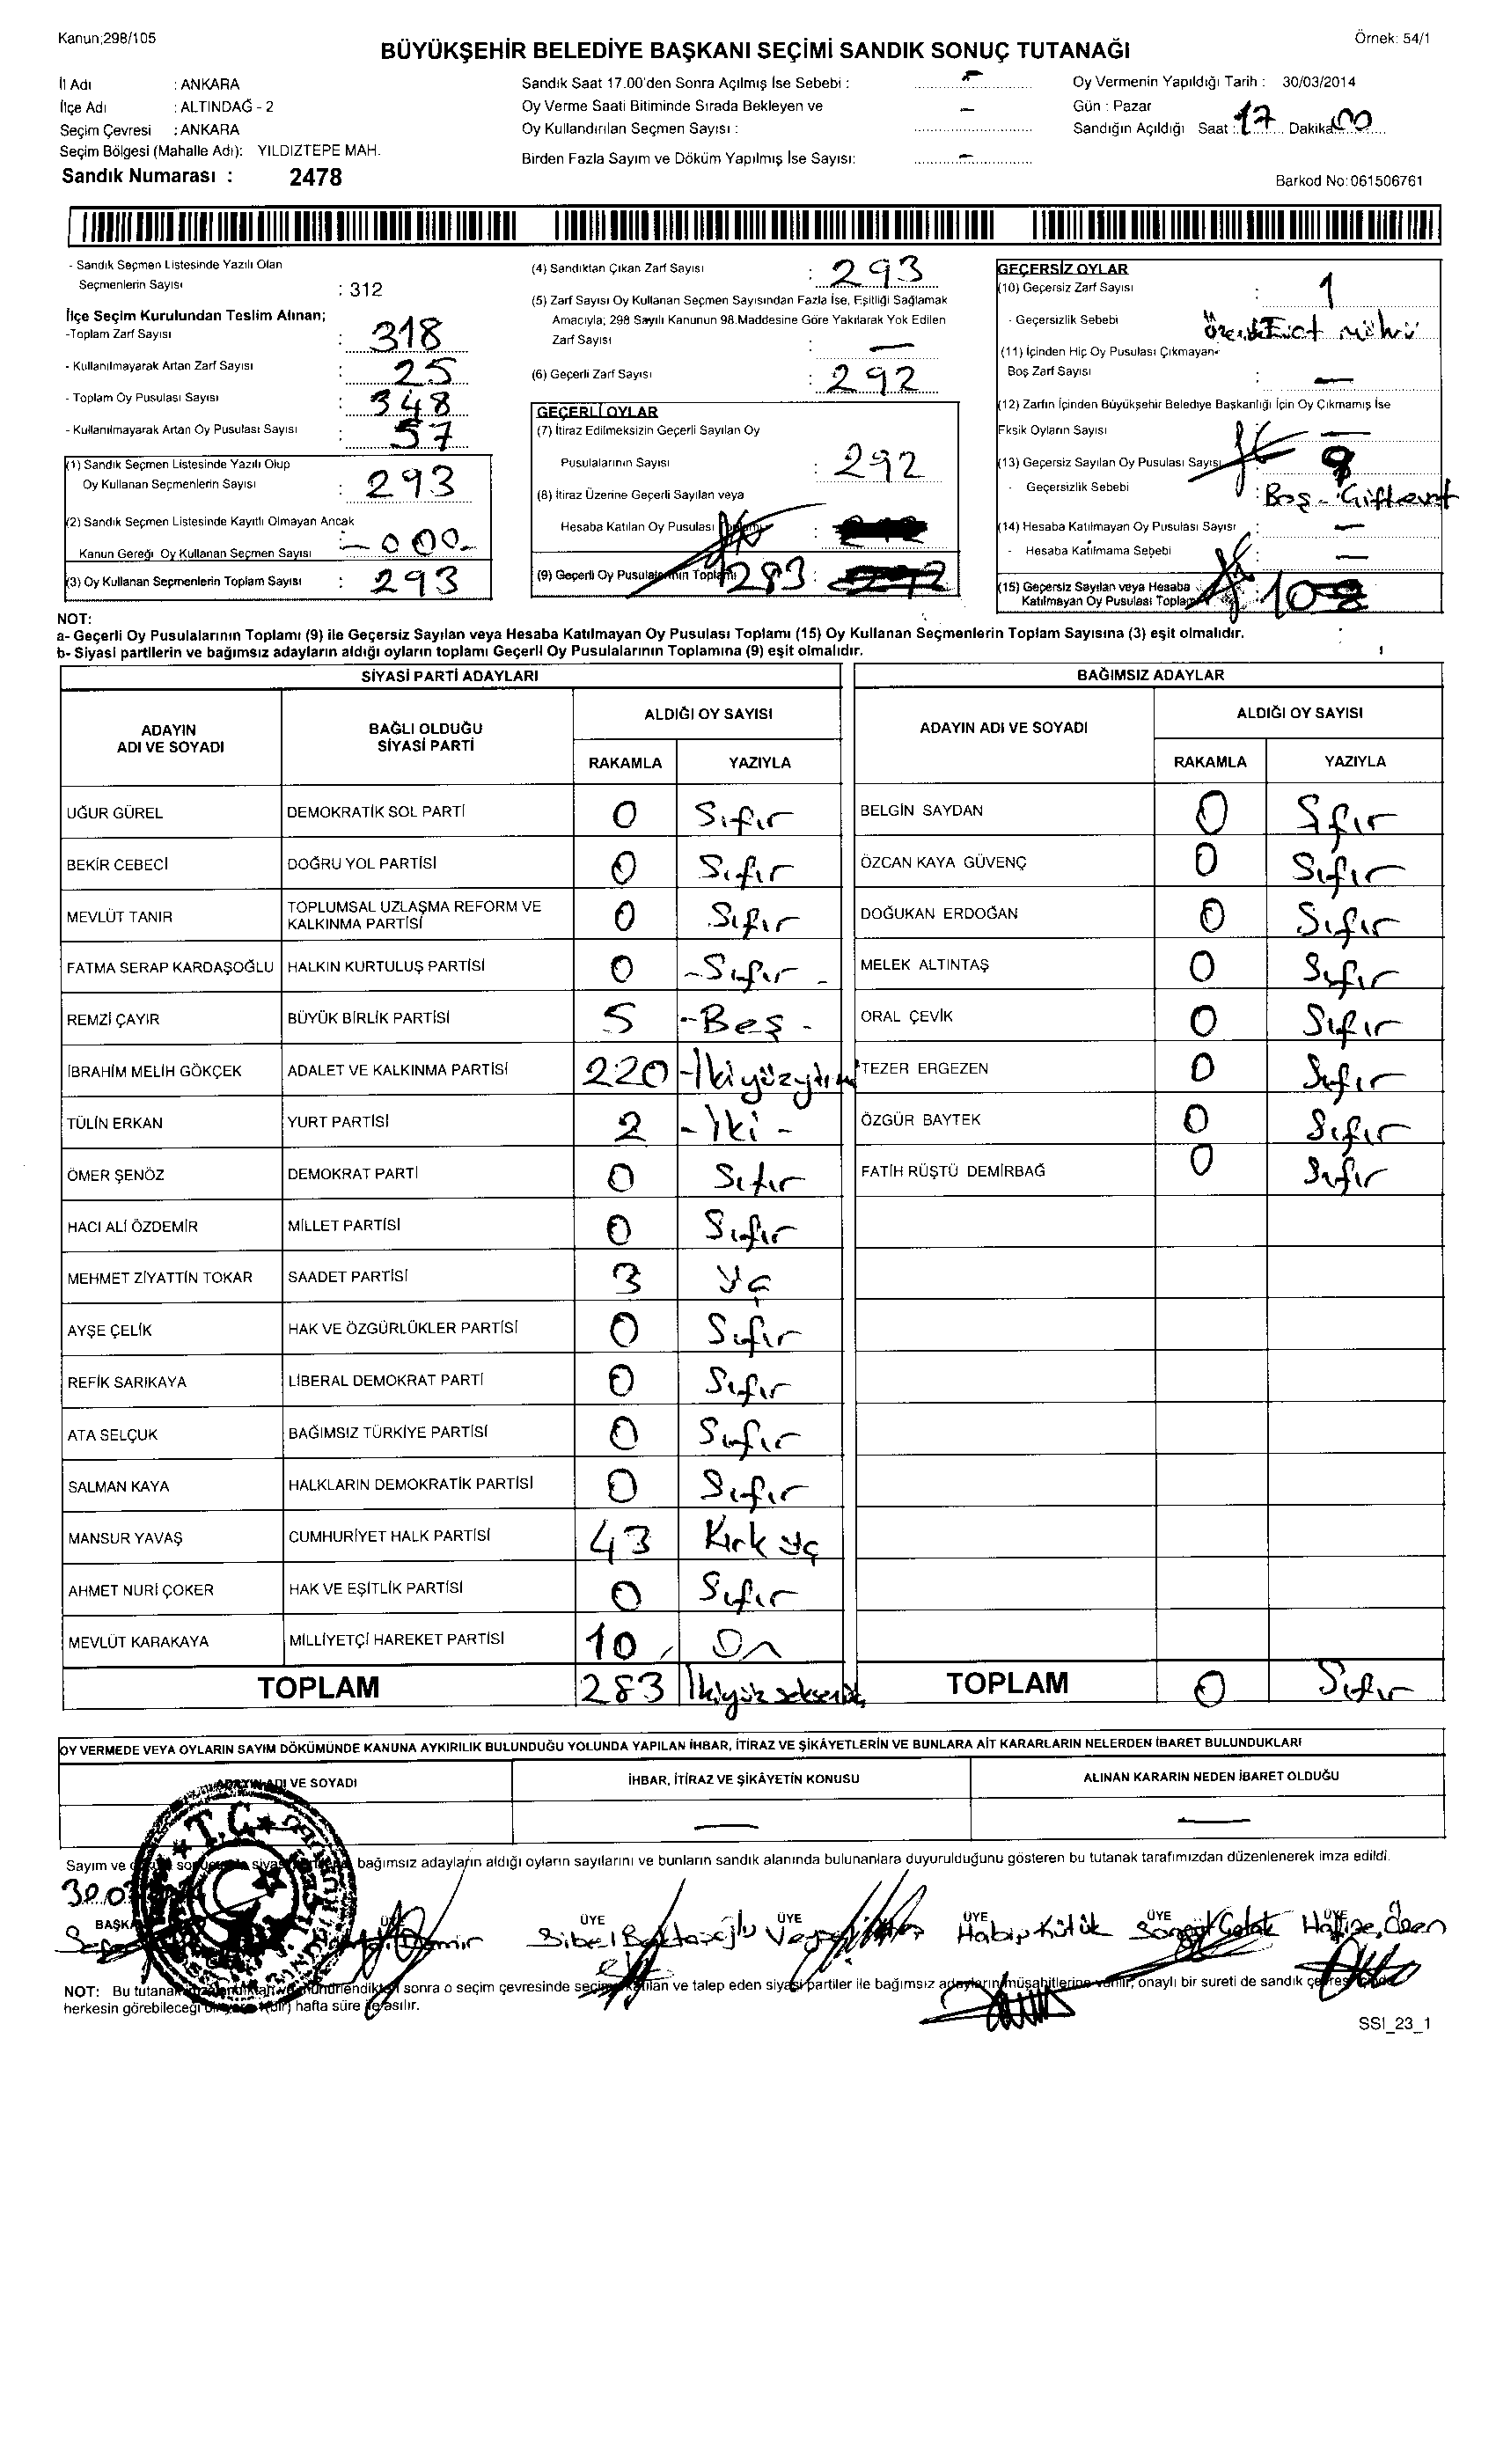 Kanun;298/105
Örnek: 54/1
BÜYÜKŞEHİR BELEDİYE BAŞKANI SEÇİMİ SANDIK SONUÇ TUTANAĞI
İl Adı : ANKARA
İlçe Adı : ALTINDAĞ - 2
Seçim Çevresi : ANKARA
Seçim Bölgesi (Mahalle Adı): YILDIZTEPE MAH.
Sandık Numarası : 2478
Sandık Saat 17.00'den Sonra Açılmış İse Sebebi : -
Oy Verme Saati Bitiminde Sırada Bekleyen ve -
Oy Kullandırılan Seçmen Sayısı :
Birden Fazla Sayım ve Döküm Yapılmış İse Sayısı: -
Oy Vermenin Yapıldığı Tarih : 30/03/2014
Gün : Pazar
Sandığın Açıldığı Saat : 17 Dakika
Barkod No:061506761
- Sandık Seçmen Listesinde Yazılı Olan
Seçmenlerin Sayısı : 312
İlçe Seçim Kurulundan Teslim Alınan;
-Toplam Zarf Sayısı : 318
- Kullanılmayarak Artan Zarf Sayısı : 25
- Toplam Oy Pusulası Sayısı : 348
- Kullanılmayarak Artan Oy Pusulası Sayısı : 57
(1) Sandık Seçmen Listesinde Yazılı Olup
Oy Kullanan Seçmenlerin Sayısı : 293
(2) Sandık Seçmen Listesinde Kayıtlı Olmayan Ancak
Kanun Gereği Oy Kullanan Seçmen Sayısı : -000-
(3) Oy Kullanan Seçmenlerin Toplam Sayısı : 293
(4) Sandıktan Çıkan Zarf Sayısı : 293
(5) Zarf Sayısı Oy Kullanan Seçmen Sayısından Fazla İse, Eşitliği Sağlamak
Amacıyla; 298 Sayılı Kanunun 98.Maddesine Göre Yakılarak Yok Edilen
Zarf Sayısı : -
(6) Geçerli Zarf Sayısı : 292
GEÇERLİ OYLAR
(7) İtiraz Edilmeksizin Geçerli Sayılan Oy
Pusulalarının Sayısı : 292
(8) İtiraz Üzerine Geçerli Sayılan veya
Hesaba Katılan Oy Pusulası :
(9) Geçerli Oy Pusulalarının Toplamı 283 :
GEÇERSİZ OYLAR
(10) Geçersiz Zarf Sayısı : 1
- Geçersizlik Sebebi
(11) İçinden Hiç Oy Pusulası Çıkmayan
Boş Zarf Sayısı : -
(12) Zarfın İçinden Büyükşehir Belediye Başkanlığı İçin Oy Çıkmamış İse
Eksik Oyların Sayısı : -
(13) Geçersiz Sayılan Oy Pusulası Sayısı 9
- Geçersizlik Sebebi : Boş -
(14) Hesaba Katılmayan Oy Pusulası Sayısı : -
- Hesaba Katılmama Sebebi : -
(15) Geçersiz Sayılan veya Hesaba
Katılmayan Oy Pusulası Toplamı 10
NOT:
a- Geçerli Oy Pusulalarının Toplamı (9) ile Geçersiz Sayılan veya Hesaba Katılmayan Oy Pusulası Toplamı (15) Oy Kullanan Seçmenlerin Toplam Sayısına (3) eşit olmalıdır.
b- Siyasi partilerin ve bağımsız adayların aldığı oyların toplamı Geçerli Oy Pusulalarının Toplamına (9) eşit olmalıdır.
SİYASİ PARTİ ADAYLARI
ADAYIN ADI VE SOYADI
BAĞLI OLDUĞU SİYASİ PARTİ
ALDIĞI OY SAYISI
RAKAMLA YAZIYLA
UĞUR GÜREL DEMOKRATİK SOL PARTİ 0 Sıfır
BEKİR CEBECİ DOĞRU YOL PARTİSİ 0 Sıfır
MEVLÜT TANIR TOPLUMSAL UZLAŞMA REFORM VE KALKINMA PARTİSİ 0 Sıfır
FATMA SERAP KARDAŞOĞLU HALKIN KURTULUŞ PARTİSİ 0 -Sıfır-
REMZİ ÇAYIR BÜYÜK BİRLİK PARTİSİ 5 -Beş-
İBRAHİM MELİH GÖKÇEK ADALET VE KALKINMA PARTİSİ 220 -İkiyüzyirmi
TÜLİN ERKAN YURT PARTİSİ 2 -İki-
ÖMER ŞENÖZ DEMOKRAT PARTİ 0 Sıfır
HACI ALİ ÖZDEMİR MİLLET PARTİSİ 0 Sıfır
MEHMET ZİYATTİN TOKAR SAADET PARTİSİ 3 Üç
AYŞE ÇELİK HAK VE ÖZGÜRLÜKLER PARTİSİ 0 Sıfır
REFİK SARIKAYA LİBERAL DEMOKRAT PARTİ 0 Sıfır
ATA SELÇUK BAĞIMSIZ TÜRKİYE PARTİSİ 0 Sıfır
SALMAN KAYA HALKLARIN DEMOKRATİK PARTİSİ 0 Sıfır
MANSUR YAVAŞ CUMHURİYET HALK PARTİSİ 43 Kırk üç
AHMET NURİ ÇOKER HAK VE EŞİTLİK PARTİSİ 0 Sıfır
MEVLÜT KARAKAYA MİLLİYETÇİ HAREKET PARTİSİ 10 On
TOPLAM 283 İkiyüz seksenüç
BAĞIMSIZ ADAYLAR
ADAYIN ADI VE SOYADI
ALDIĞI OY SAYISI
RAKAMLA YAZIYLA
BELGİN SAYDAN 0 Sıfır
ÖZCAN KAYA GÜVENÇ 0 Sıfır
DOĞUKAN ERDOĞAN 0 Sıfır
MELEK ALTINTAŞ 0 Sıfır
ORAL ÇEVİK 0 Sıfır
TEZER ERGEZEN 0 Sıfır
ÖZGÜR BAYTEK 0 Sıfır
FATİH RÜŞTÜ DEMİRBAĞ 0 Sıfır
TOPLAM 0 Sıfır
OY VERMEDE VEYA OYLARIN SAYIM DÖKÜMÜNDE KANUNA AYKIRILIK BULUNDUĞU YOLUNDA YAPILAN İHBAR, İTİRAZ VE ŞİKÂYETLERİN VE BUNLARA AİT KARARLARIN NELERDEN İBARET BULUNDUKLARI
ADAYIN ADI VE SOYADI
İHBAR, İTİRAZ VE ŞİKÂYETİN KONUSU
ALINAN KARARIN NEDEN İBARET OLDUĞU
T.C.
Sayım ve bağımsız adayların aldığı oyların sayılarını ve bunların sandık alanında bulunanlara duyurulduğunu gösteren bu tutanak tarafımızdan düzenlenerek imza edildi.
ÜYE ÜYE ÜYE ÜYE ÜYE
Sibel Habip Kütük Hafize
NOT: Bu tutanak sonra o seçim çevresinde seçime katılan ve talep eden siyasi partiler ile bağımsız adayların müşahitlerine verilir, onaylı bir sureti de sandık çevresi içinde
herkesin görebileceği bir yere (bir) hafta süre ile asılır.
SSI_23_1